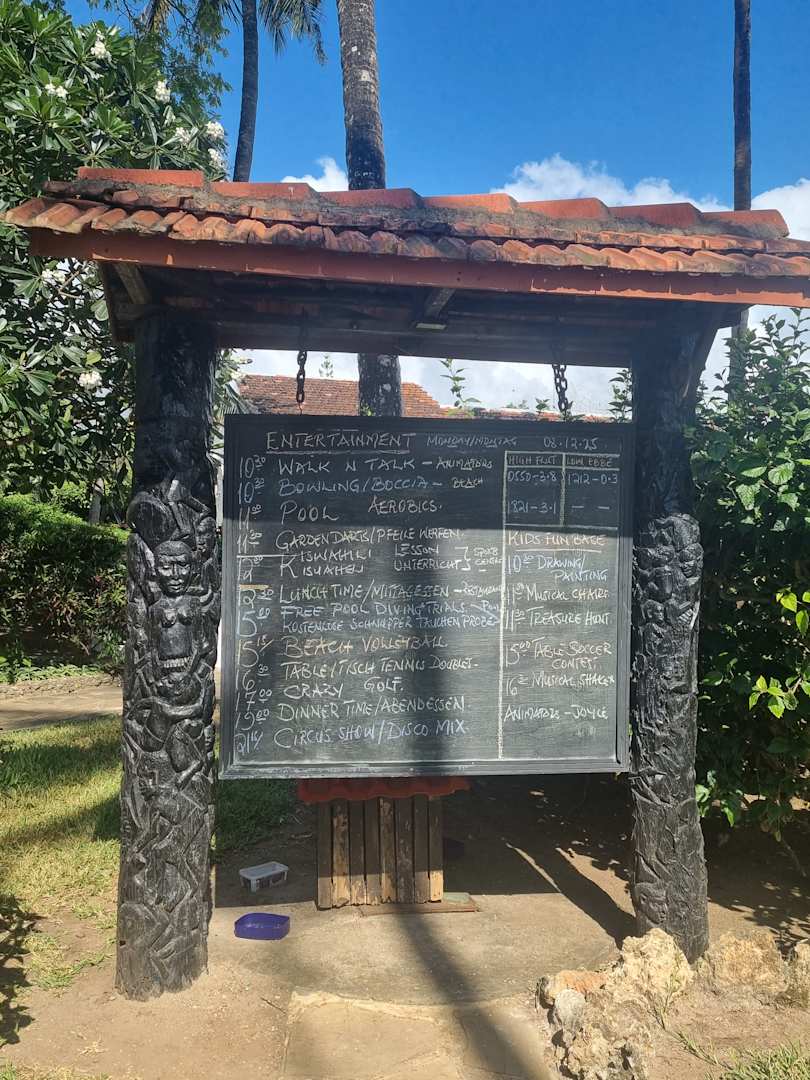 ENTERTAINMENT MONDAY/MONTAG 08.12.25
10 30 WALK N TALK - ANIMATORS
10 30 BOWLING/BOCCIA - BEACH
11 00 POOL AEROBICS.
GARDEN DARTS/PFEILE WERFEN.
KISWAHILI LESSON
KISUAHELI UNTERRICHT
LUNCH TIME/MITTAGESSEN - RESTAURANT
FREE POOL DIVING TRIALS - POOL
KOSTENLOSE SCHNUPPER TAUCHEN PROBE
15 15 BEACH VOLLEYBALL
16 30 TABLE/TISCH TENNIS DOUBLES.
17 00 CRAZY GOLF.
19 00 DINNER TIME/ABENDESSEN.
21 15 CIRCUS SHOW/DISCO MIX.
HIGH FLUT LOW EBBE
0550-3.8 1212-0.3
1821-3.1 - -
KIDS FUN BASE
10 30 DRAWING/
PAINTING
MUSICAL CHAIRS
11 30 TREASURE HUNT
15 00 TABLE SOCCER
CONTEST.
16 00 MUSICAL SHAKER
ANIMATORS - JOYCE